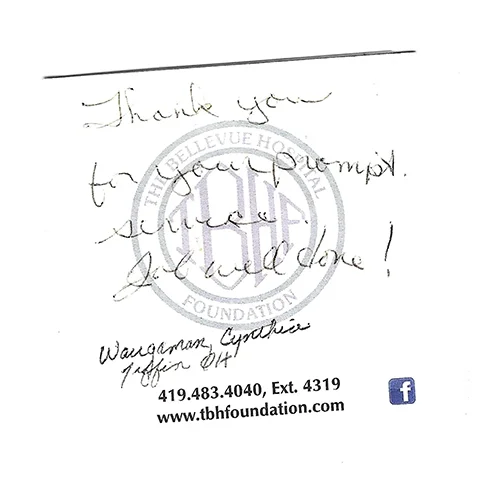 Thank you
for your prompt.
service.
Job well done!
THE BELLEVUE HOSPITAL
TBHF
FOUNDATION
Waugaman, Cynthia
Tiffin OH
419.483.4040, Ext. 4319
www.tbhfoundation.com
f